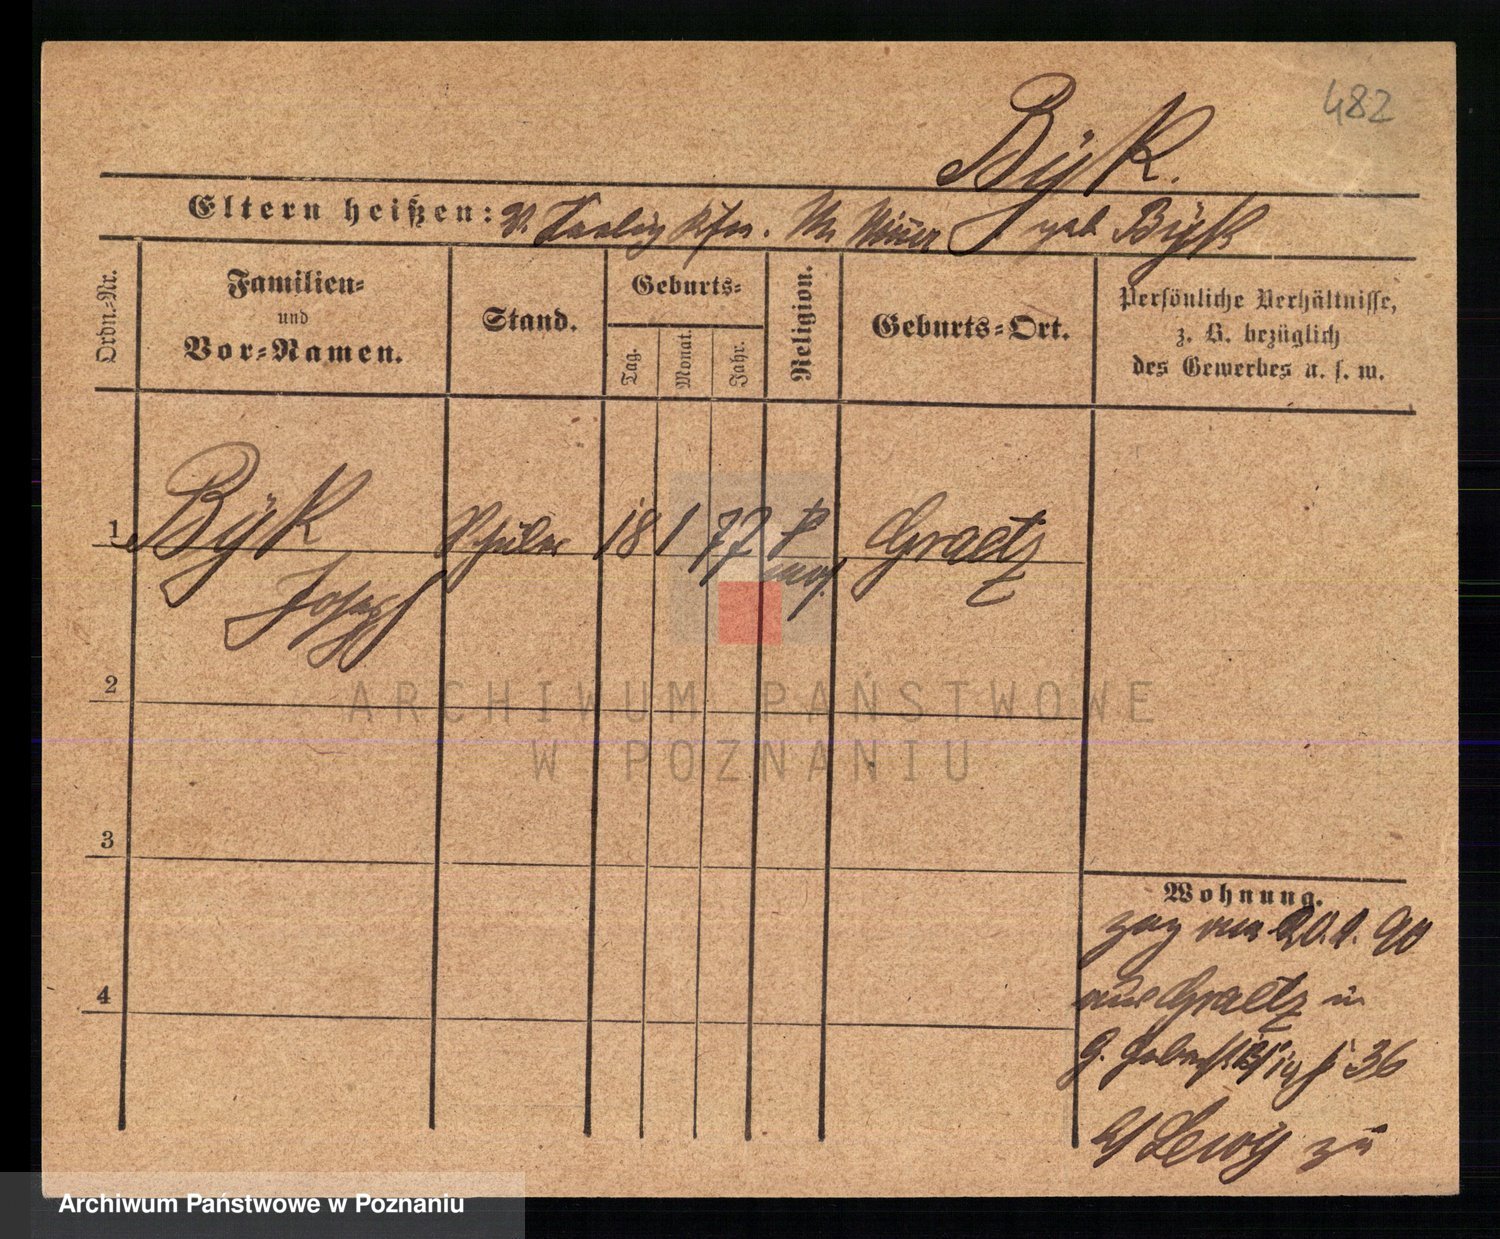 482
Byk.
Eltern heißen: V. Kfm. M. geb. Byk
Ordn.-Nr.
Familien-
und
Vor-Namen.
Stand.
Geburts-
Tag.
Monat.
Jahr.
Religion.
Geburts-Ort.
Persönliche Verhältnisse,
z. B. bezüglich
des Gewerbes u. s. w.
1 Byk Schüler 18 1 77 Graetz
mos.
Josepf
2
3
4
Wohnung.
zog am 20. 1. 90
aus Graetz in
36
b/ Lewy zu
ARCHIWUM PAŃSTWOWE
W POZNANIU
Archiwum Państwowe w Poznaniu